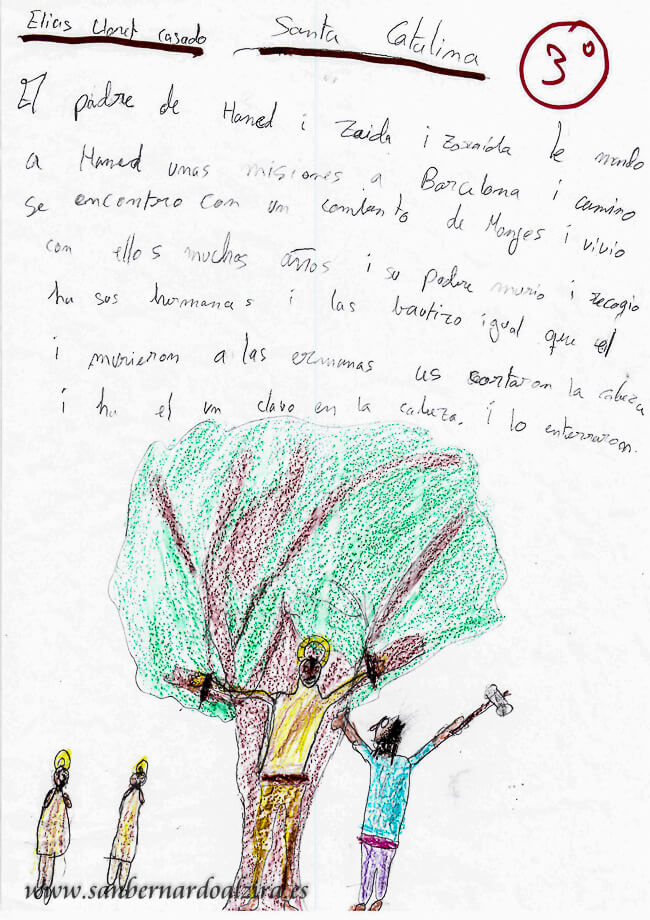 Elias Lloret Casado Santa Catalina 3º
El padre de Hamed i Zaida i Zoraida le mando
a Hamed unas misiones a Barcelona i camino
se encontro con un combento de Monges i vivio
con ellos muchos años i su padre murio i recogio
ha sus hermanas i las bautizo igual que el
i murieron a las ermanas les cortaron la cabeza
i ha el un clavo en la cabeza. i lo enterraron.
www.sanbernardoalzira.es